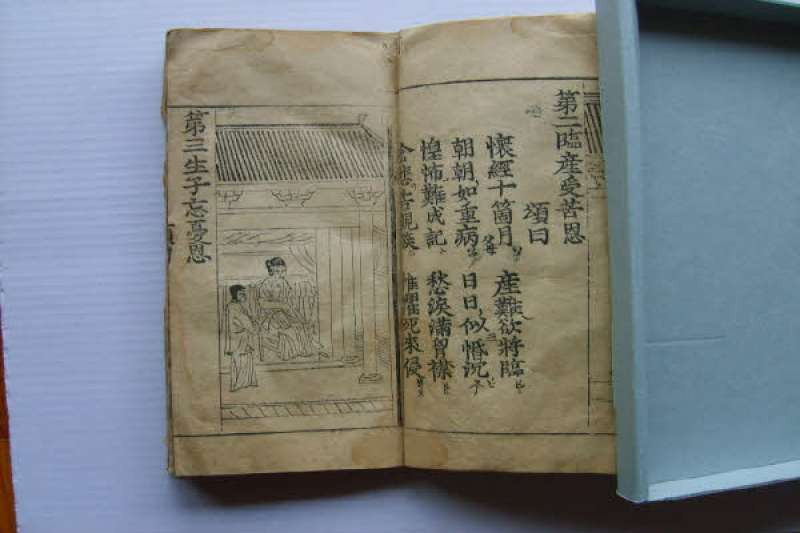 第二臨産受苦恩
頌曰
懷經十箇月 産難欲將臨
朝朝如重病 日日似惛沉
惶怖難成記 愁淚滿胷襟
含悲告親族 惟懼死來侵
第三生子忘憂恩